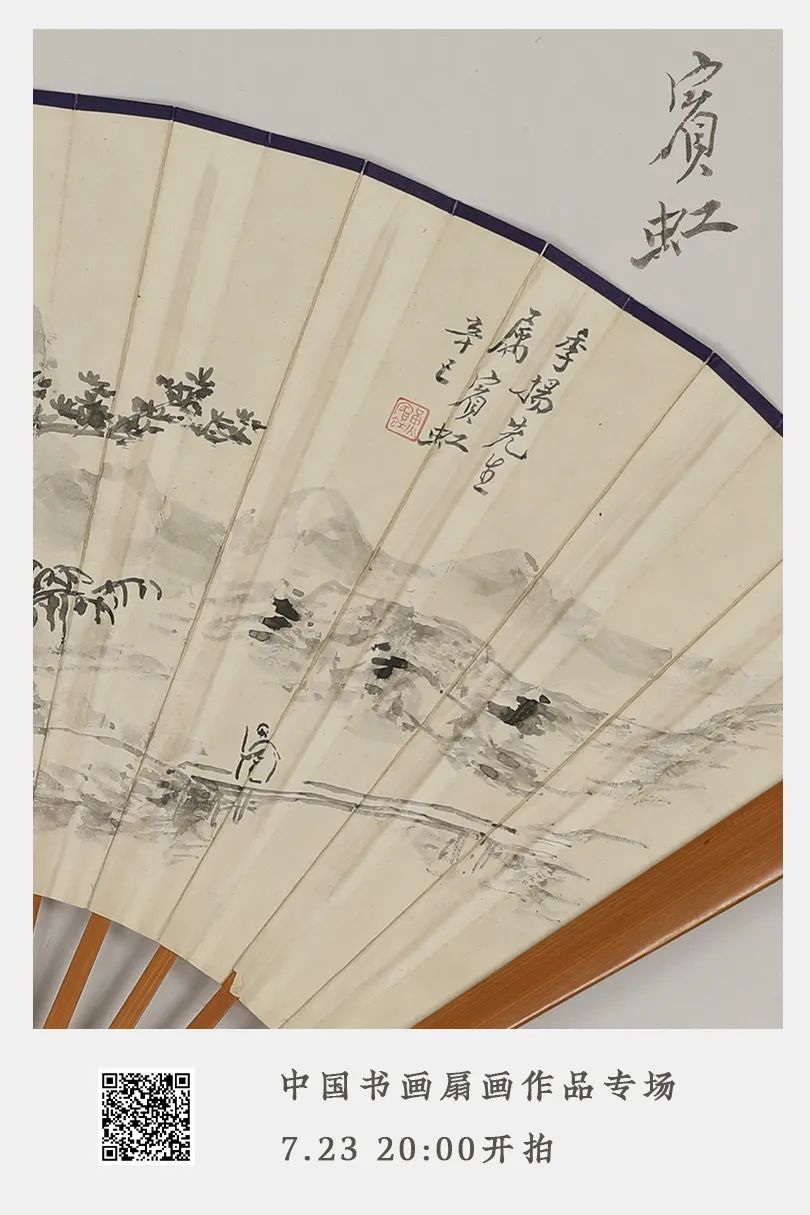 賓虹
季揚先生
屬 賓虹
辛巳
中国书画扇画作品专场
7.23 20:00开拍